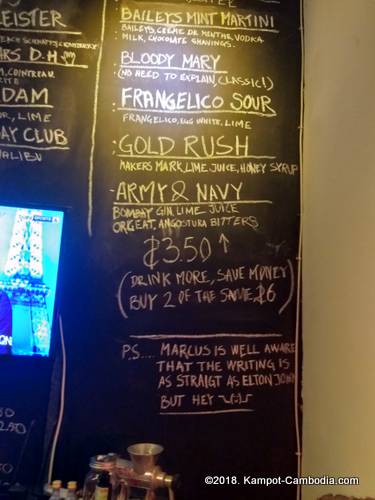 EISTER
ARS D.H
ADAM
OR, LIME
AY CLUB
MALIBU
BAILEYS MINT MARTINI
BAILEYS, CREME DE MENTHE, VODKA
MILK, CHOCOLATE SHAVINGS.
BLOODY MARY
(NO NEED TO EXPLAIN, CLASSIC!)
FRANGELICO SOUR
FRANGELICO, EGG WHITE, LIME
GOLD RUSH
MAKERS MARK, LIME JUICE, HONEY SYRUP
ARMY & NAVY
BOMBAY GIN, LIME JUICE
ORGEAT, ANGOSTURA BITTERS
$3.50 ↑
(DRINK MORE, SAVE MONEY
BUY 2 OF THE SAME, $6)
P.S.... MARCUS IS WELL AWARE
THAT THE WRITING IS
AS STRAIGT AS ELTON JOHN
BUT HEY ¯\_(:)_/¯
©2018. Kampot-Cambodia.com